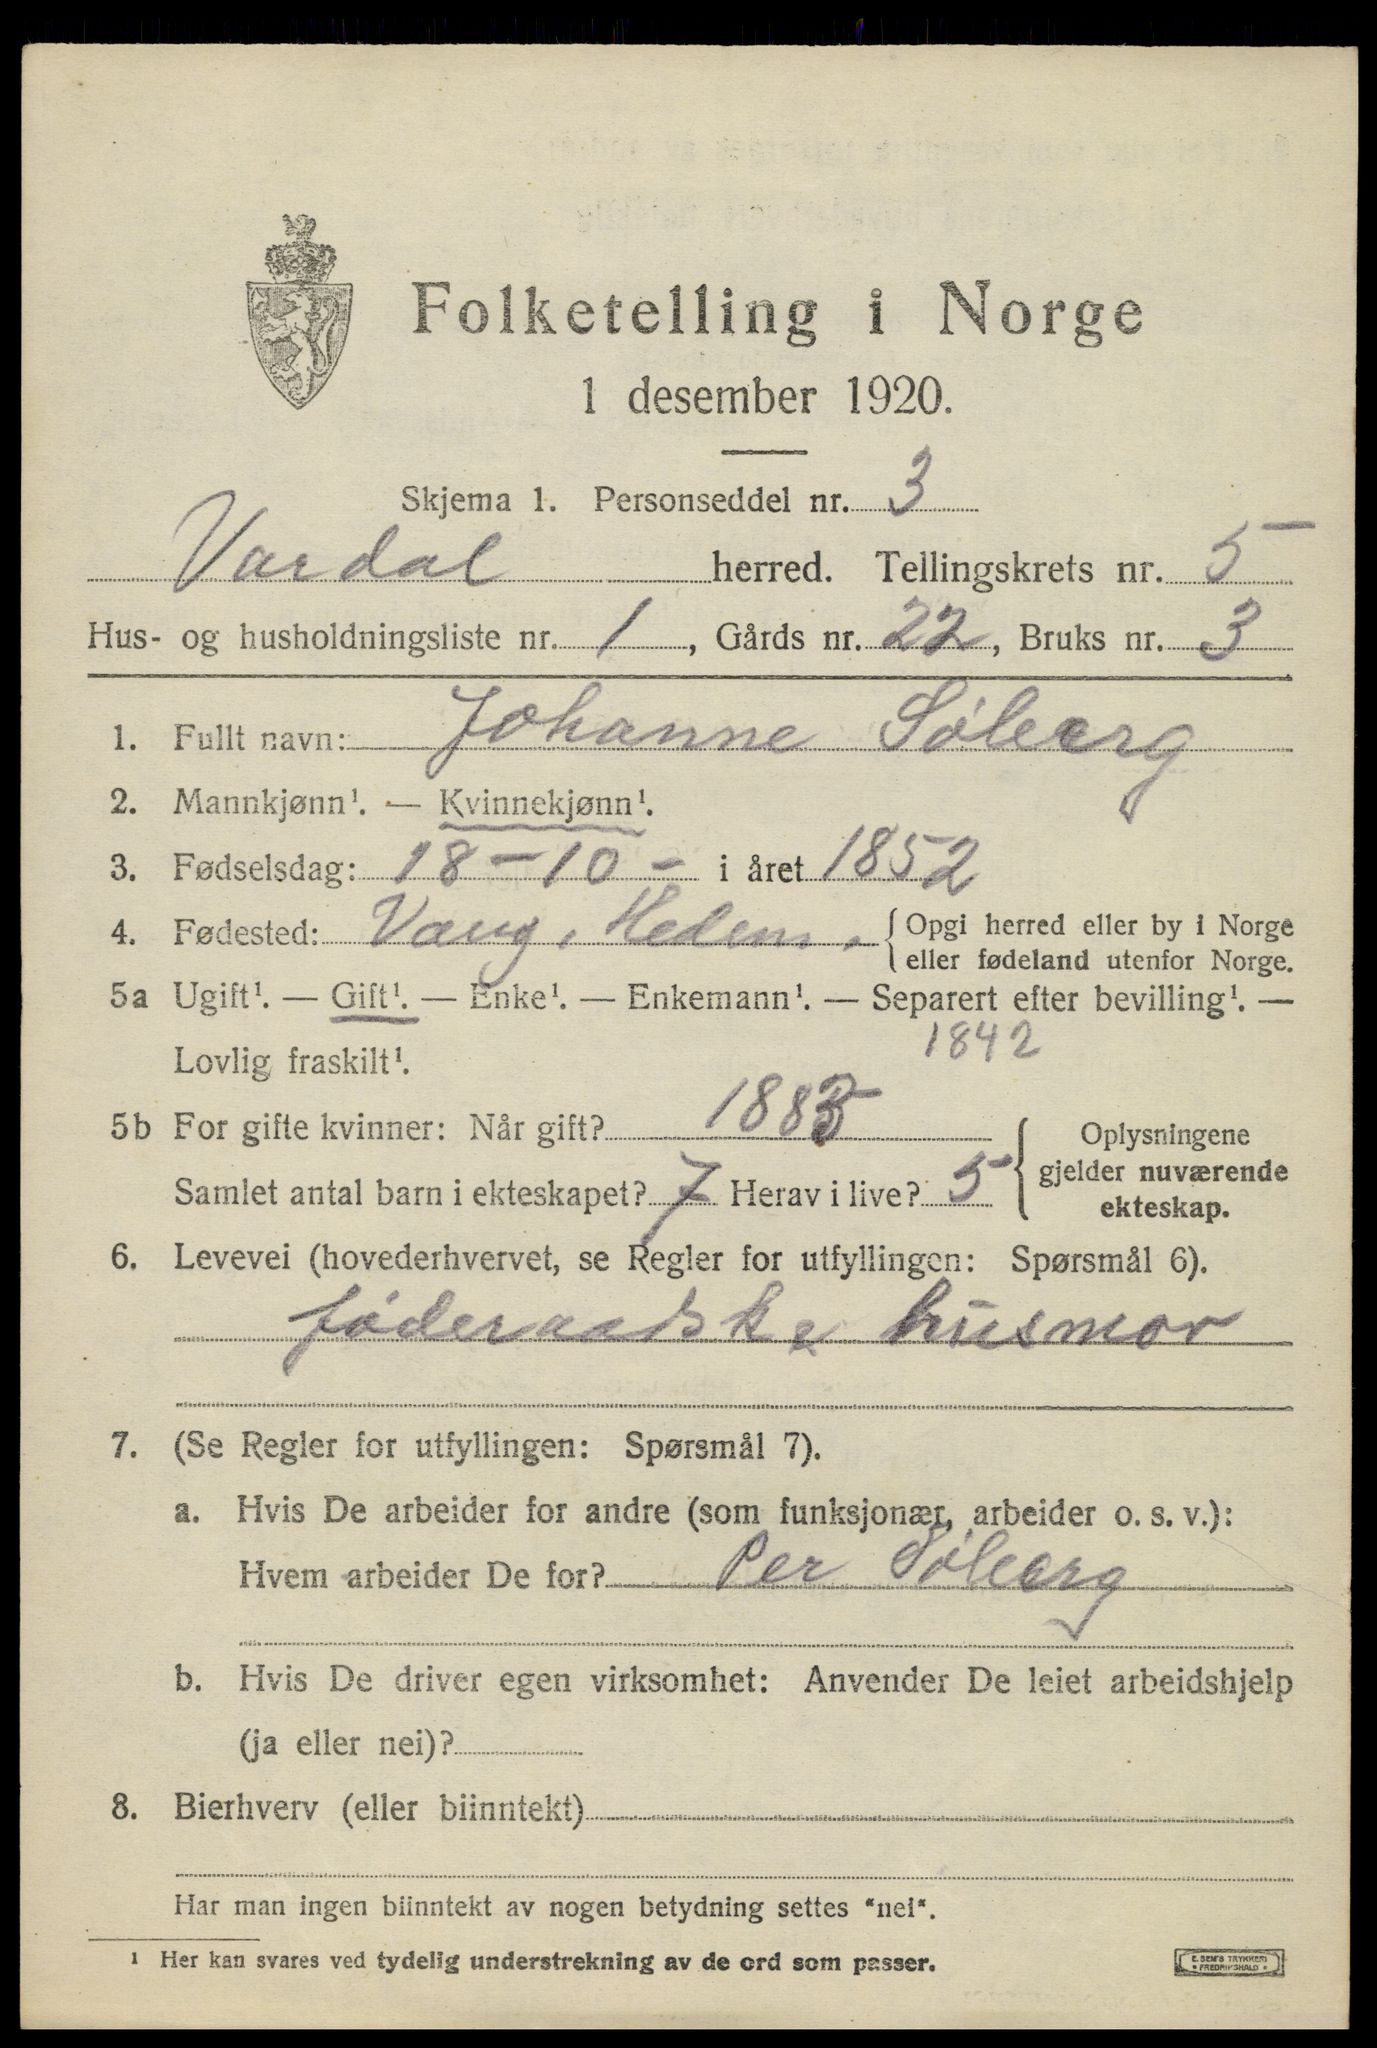 Folketelling i Norge
1 desember 1920.
Skjema 1. Personseddel nr. 3
Vardal herred. Tellingskrets nr. 5
Hus- og husholdningsliste nr. 1, Gårds nr. 22, Bruks nr. 3
1. Fullt navn: Johanne Søberg
2. Mannkjønn¹. — Kvinnekjønn¹.
3. Fødselsdag: 18 – 10 – i året 1852
4. Fødested: Vang, Hedem. {Opgi herred eller by i Norge
eller fødeland utenfor Norge.
5a Ugift¹. — Gift¹. — Enke¹. — Enkemann¹. — Separert efter bevilling¹. —
Lovlig fraskilt¹. 1842
5b For gifte kvinner: Når gift? 1885 { Oplysningene
gjelder nuværende
Samlet antal barn i ekteskapet? 7 Herav i live? 5
ekteskap.
6. Levevei (hovederhvervet, se Regler for utfyllingen: Spørsmål 6).
føderaadske husmor
7. (Se Regler for utfyllingen: Spørsmål 7).
a. Hvis De arbeider for andre (som funksjonær, arbeider o. s. v.):
Hvem arbeider De for? Per Søberg
b. Hvis De driver egen virksomhet: Anvender De leiet arbeidshjelp
(ja eller nei)?
8. Bierhverv (eller biinntekt)
Har man ingen biinntekt av nogen betydning settes "nei".
¹ Her kan svares ved tydelig understrekning av de ord som passer.
E. SEM'S TRYKKERI
* FREDRIKSHALD *